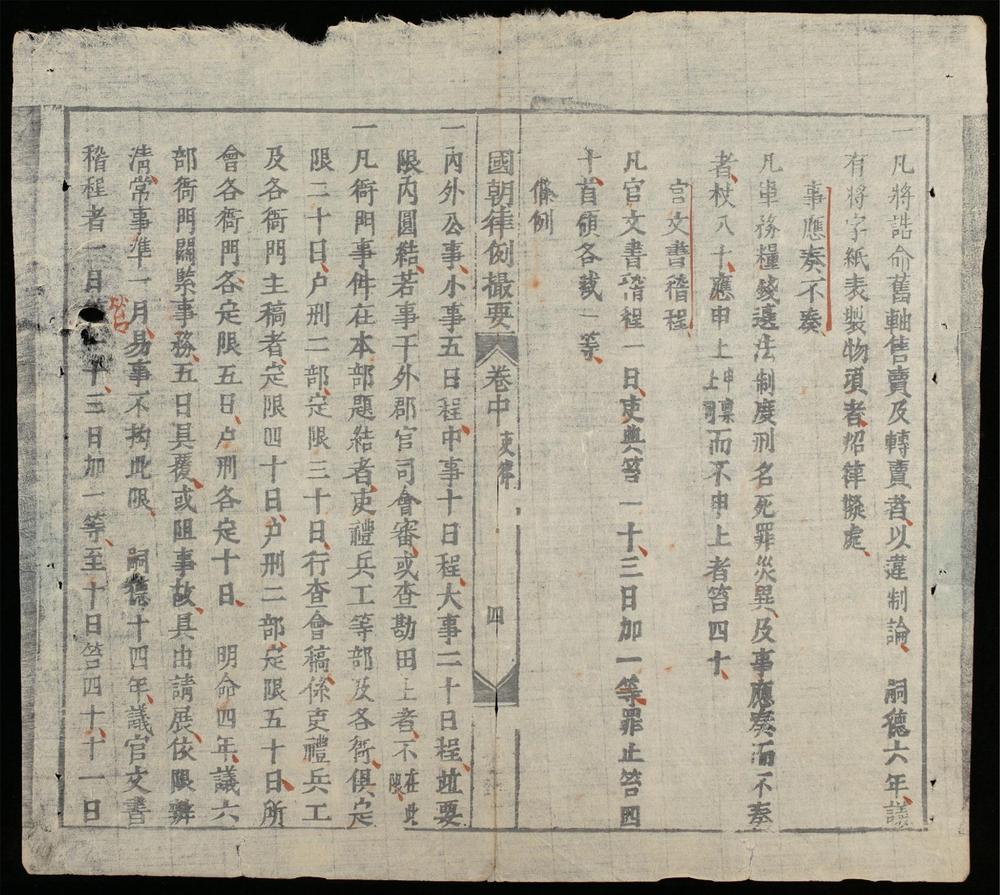 一凡將誥命舊軸售賣及轉賣者以違制論 嗣德六年議
有將字紙表製物項者炤律擬處
事應奏不奏
凡軍務糧錢選法制度刑名死罪災異及事應奏而不奏
者杖八十應申上申稟上司而不申上者笞四十
官文書稽程
凡官文書稽程一日吏典笞一十三日加一等罪止笞四
十首領各減一等
條例
國朝律例撮要 卷中 吏律 四
一內外公事小事五日程中事十日程大事二十日程並要
限內圓結若事干外郡官司會審或查勘田土者不在此限
一凡衙門事件在本部題結者吏禮兵工等部及各衙俱定
限二十日户刑二部定限三十日行查會稿係吏禮兵工
及各衙門主稿者定限四十日户刑二部定限五十日所
會各衙門各定限五日户刑各定十日 明命四年議六
部衙門關緊事務五日具覆或阻事故具由請展依限辦
清常事準一月易事不拘此限 嗣德十四年議官文書
稽程者一日笞二十三日加一等至十日笞四十十一日
笞